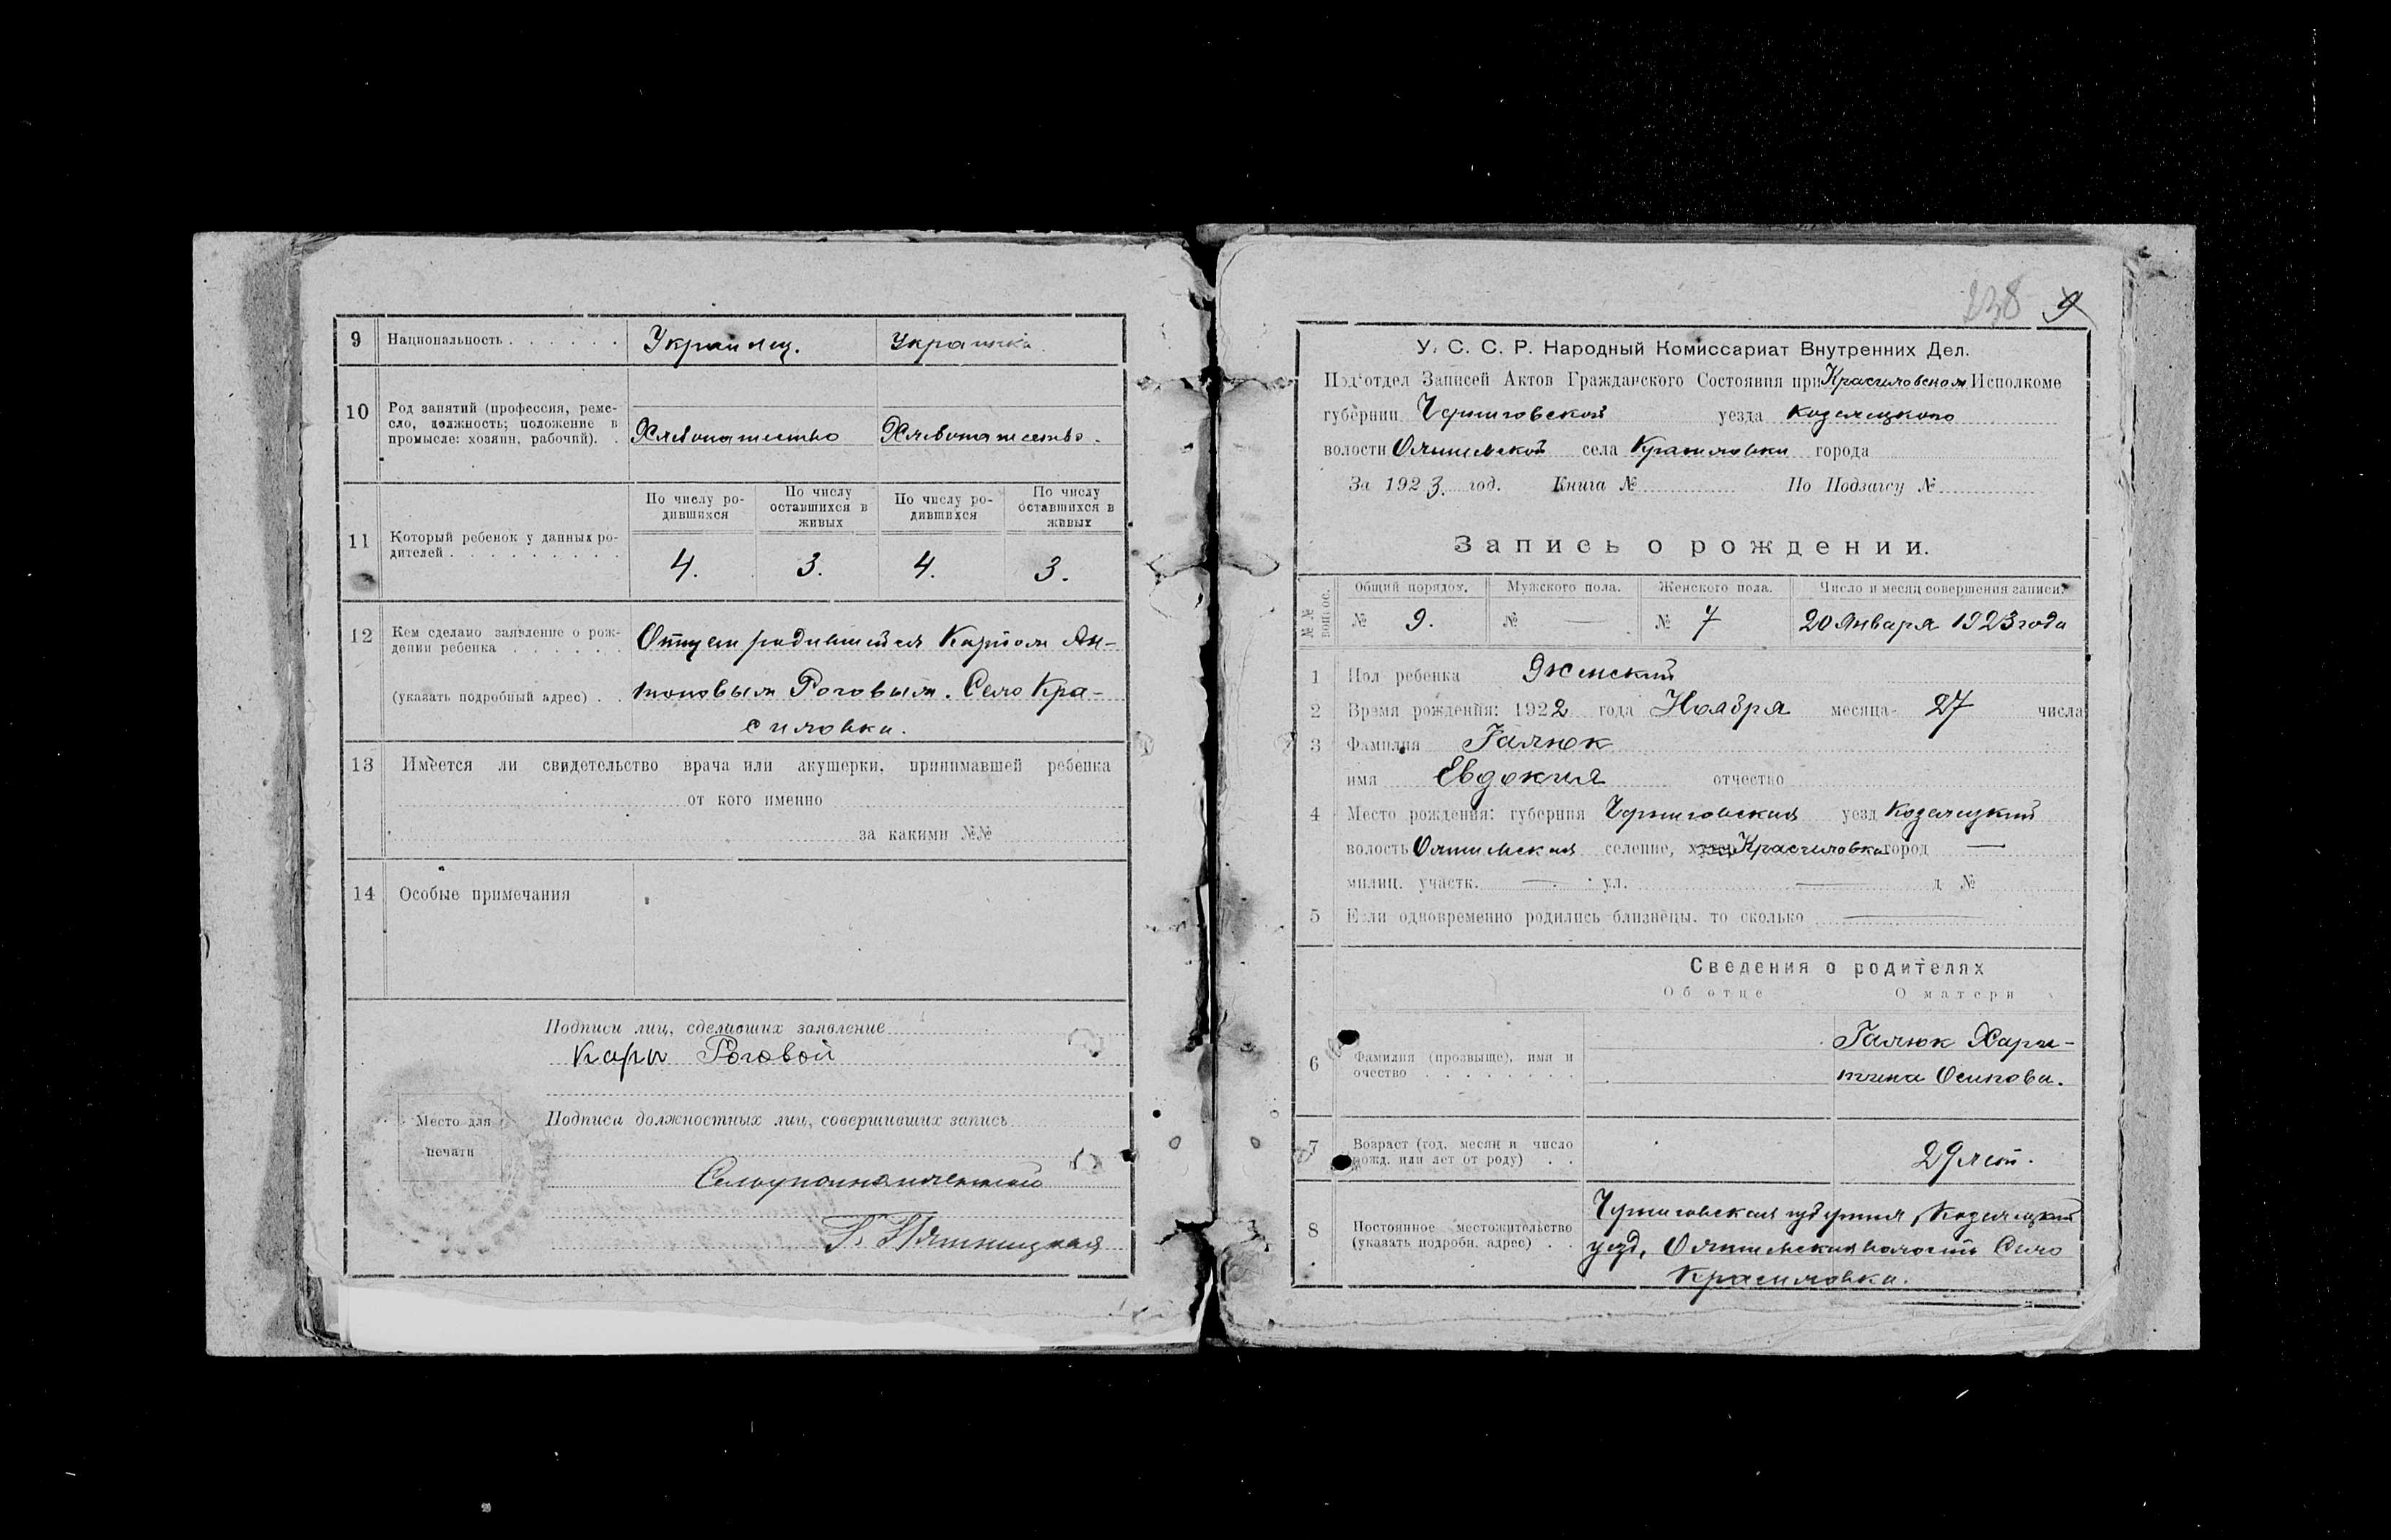 9 Национальность Украинец. Украинка.
10 Род занятий (профессия, реме-
сло, должность; положение в
промысле: хозяин, рабочий). Хлебопашество Хлебопашество.
11 Который ребенок у данных ро-
дителей
По числу ро-
дившихся
По числу
оставшихся в
живых
По числу ро-
дившихся
По числу
оставшихся в
живых
4. 3. 4. 3.
12 Кем сделано заявление о рож-
дении ребенка
(указать подробный адрес)
Отцем родившейся Карпом Ан-
тоновым Роговым. Село Кра-
силовка.
13 Имеется ли свидетельство врача или акушерки, принимавшей ребенка
от кого именно
за какими №№
14 Особые примечания
Подписи лиц, сделавших заявление
Карп Роговой
Место для
печати
Подписи должностных лиц, совершивших запись
Г. Пятницкая
238 9
У. С. С. Р. Народный Комиссариат Внутренних Дел.
Под'отдел Записей Актов Гражданского Состояния при Красиловском Исполкоме
губернии Черниговской уезда Козелецкого
волости Олишевской села Красиловки города
За 1923. год. Книга № По Подзагсу №
Запись о рождении.
№№ вопрос.
Общий порядок. Мужского пола. Женского пола. Число и месяц совершения записи.
№ 9. № — № 7 20 Января 1923 года
1 Пол ребенка Женский
2 Время рождения: 1922 года Ноября месяца 27 числа
3 Фамилия Галюк
имя Евдокия отчество
4 Место рождения: губерния Черниговская уезд Козелецкий
волость Олишевская селение, Красиловка город —
милиц. участк. — ул. — д №
5 Если одновременно родились близнецы, то сколько —
Сведения о родителях
Об отце О матери
6 Фамилия (прозвище), имя и
очество
Галюк Хари-
тина Осипова.
7 Возраст (год, месяц и число
рожд. или лет от роду) 29 лет.
8 Постоянное местожительство
(указать подробн. адрес)
Черниговская губерния, Козелецкий
уезд, Олишевская волость Село
Красиловка.